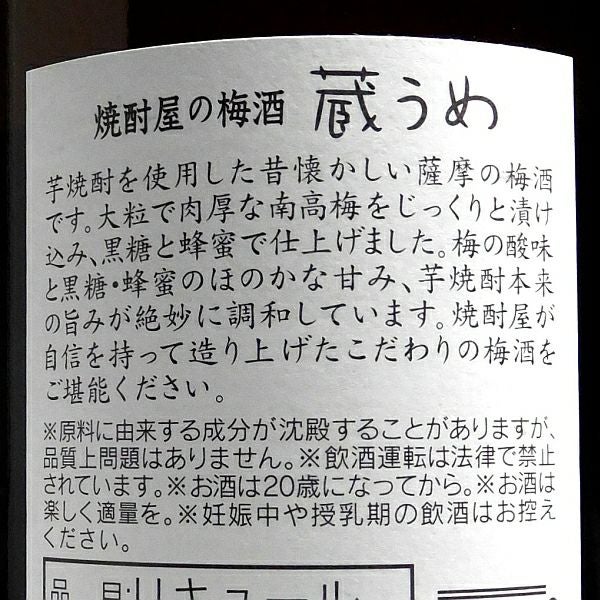 焼酎屋の梅酒 蔵うめ
芋焼酎を使用した昔懐かしい薩摩の梅酒
です。大粒で肉厚な南高梅をじっくりと漬け
込み、黒糖と蜂蜜で仕上げました。梅の酸味
と黒糖・蜂蜜のほのかな甘み、芋焼酎本来
の旨みが絶妙に調和しています。焼酎屋が
自信を持って造り上げたこだわりの梅酒を
ご堪能ください。
※原料に由来する成分が沈殿することがありますが、
品質上問題はありません。※飲酒運転は法律で禁止
されています。※お酒は20歳になってから。※お酒は
楽しく適量を。※妊娠中や授乳期の飲酒はお控え
ください。
品 目:リキュール